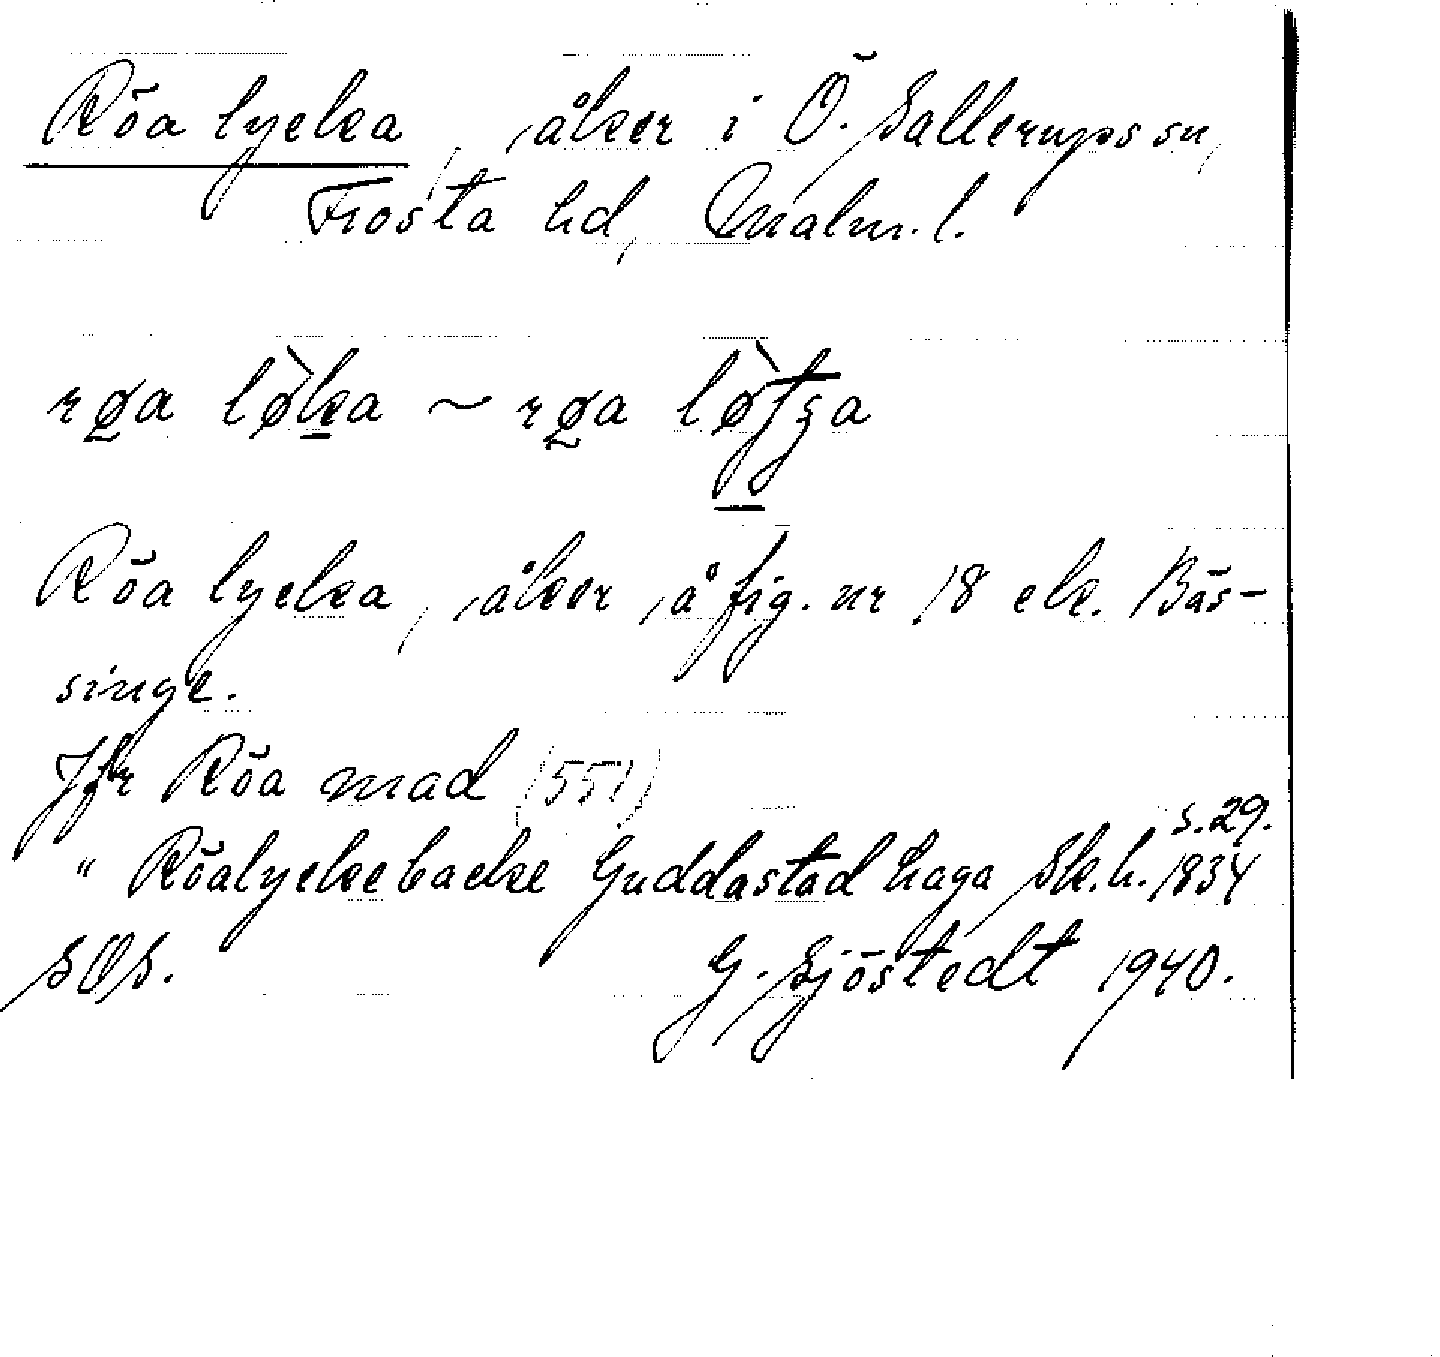 Röa lycka, åker i Ö. Sallerups sn,
Frosta hd, Malm. l.
røa løka ~ røa
Röa lycka, åker å fig. nr 18 ek. Bäs-
singe.
Jfr Röa mad (551)
s. 29.
" Röalyckebacke Guddastad haga Sk. h. 1834
SOS. G. Sjöstedt 1940.